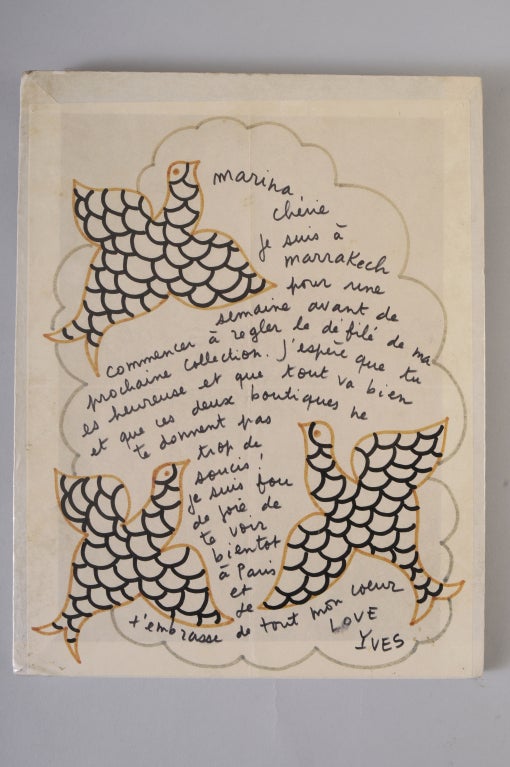 marina
chérie
je suis à
marrakech
pour une
semaine avant de
commencer à regler le defilé de ma
prochaine collection. J'espère que tu
es heureuse et que tout va bien
et que ces deux boutiques ne
te donnent pas
trop de
soucis!
je suis fou
de joie de
te voir
bientot
à Paris
et
Je
t'embrasse de tout mon coeur
LOVE
YVES